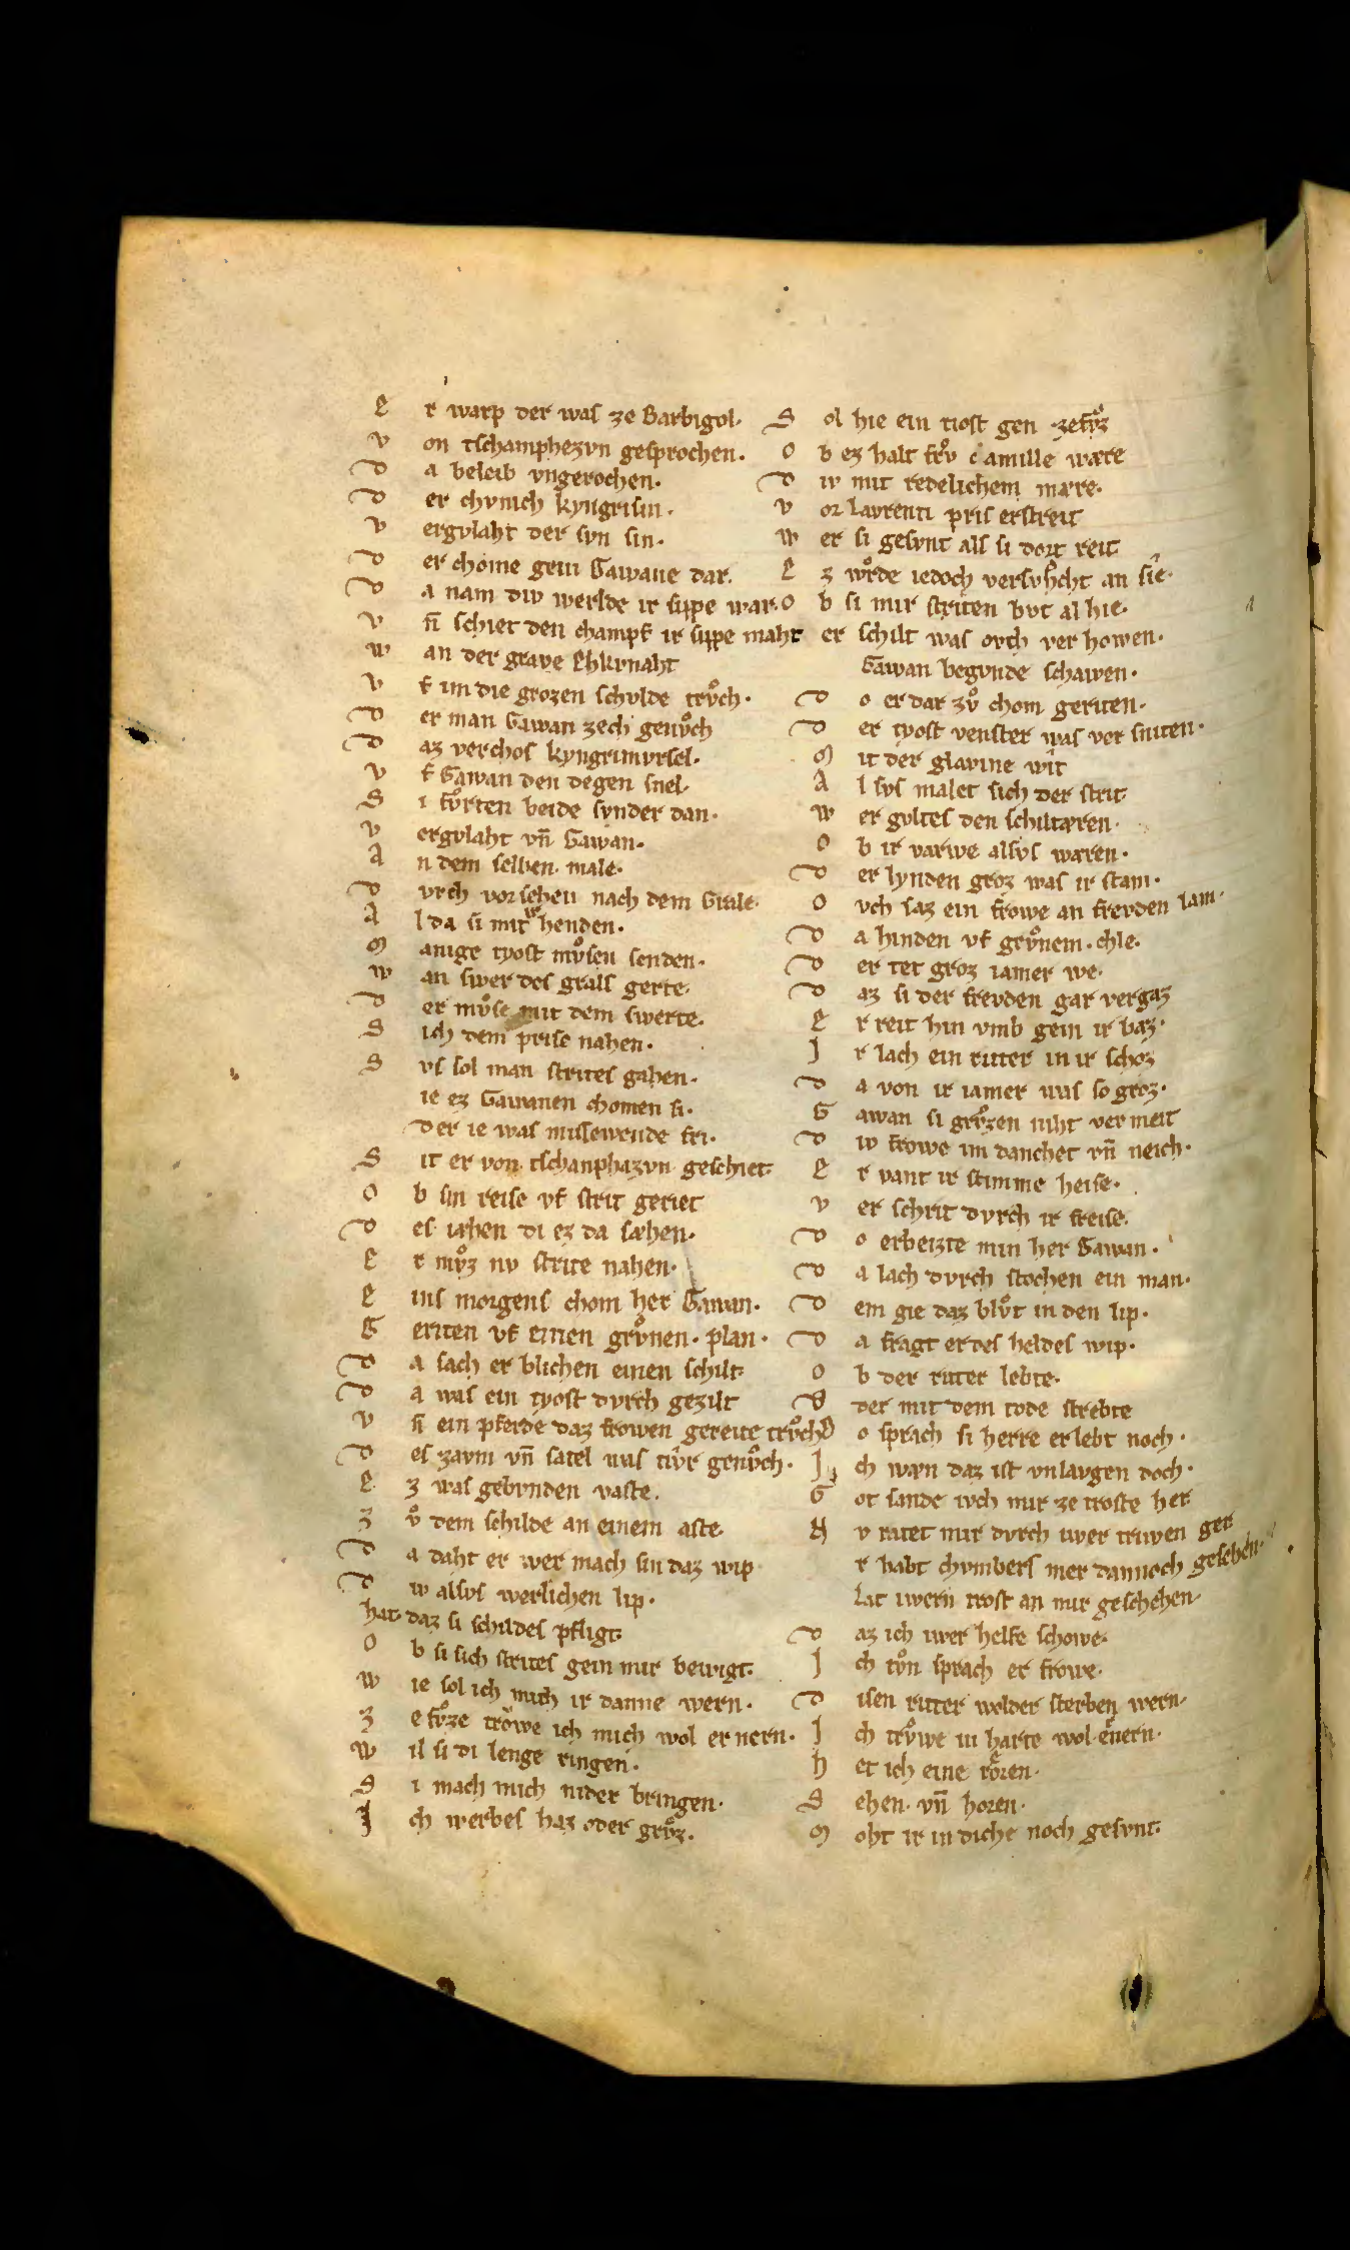 E r warp der was ze Barbigol·
v on tschamphezvn gesprochen·
D a beleib vngerochen·
D er chvnich kyngrisin·
v ergvlaht der svn sin·
D er chome gein Gawane dar·
D a nam div werlde ir sippe war·
v n̄ schiet den champf ir sippe maht
w an der grave Ehkvnaht
v f im die grozen schvlde trvͦch·
D er man Gawan zech genvͦch
D az verchos kyngrimvrsel·
v f Gawan den degen snel·
S i fvͦrten beide svnder dan·
v ergvlaht vn̄ Gawan·
A n dem selben male·
D vrch vorschen nach dem Grale·
A l da si mit henden·
M anige tyost mvͦsen senden·
w an swer des grals gerte·
D er mvͦse mit dem swerte·
S ich dem prise nahen·
S vs sol man strites gahen·
ie ez Gawanen chomen si·
Der ie was missewende fri·
S it er von tschanphazvn geschiet·
O b sin reise vf strit geriet
D es iæhen di ez da sæhen·
E r mvͦz nv strite nahen·
E ins morgens chom her Gawan·
G eriten vf einen grvͦnen· plan·
D a sach er blichen einen schilt·
D a was ein tyost dvrch gezilt
v n̄ ein pferde daz frowen gereite trvͦch
D es zavm vn̄ satel was tivr genvͦch·
E z was gebvnden vaste·
Z vͦ dem schilde an einem aste·
D a daht er wer mach sin daz wip
D iv alsvs werlichen lip·
hat· daz si schildes pfligt·
O b si sich strites gein mir bewigt·
w ie sol ich mich ir danne wern·
Z e fvͦze trowe ich mich wol er nern·
w il si di lenge ringen·
S i mach mich nider bringen·
I ch werbes haz oder grvͦz·
S ol hie ein tiost gen· zefvͦz
O b ez halt frvͦ camille wære
D iv mit redelichem mære·
v or lavrenti pris erstreit
w er si gesvnt als si dort reit
E z wͦrde iedoch versvͦcht an sie·
O b si mir striten bvt al hie·
er schilt was ovch ver howen·
Gawan begvnde schawen·
D o er dar zvͦ chom geriten·
D er tyost venster was ver sniten·
M it der glavine wit
A l svs malet sich der strit·
w er gvltes den schiltæren·
O b ir varwe alsvs wæren·
D er lynden groz was ir stam·
O vch saz ein frowe an frevden lam·
D a hinden vf grvͦnem· chle·
D er tet groz iamer we·
D az si der frevden gar vergaz
E r reit hin vmb gein ir baz·
I r lach ein riter in ir schoz
D a von ir iamer was so groz·
G awan si grvͦzen niht ver meit
D iv frowe im danchet vn̄ neich·
E r vant ir stimme heise·
v er schrit dvrch ir freise·
D o erbeizte min her Gawan·
D a lach dvrch stochen ein man·
D em gie daz blvͦt in den lip·
D a fragt er des heldes wip·
O b der riter lebte·
D der mit dem tode strebte
D o sprach si herre er lebt noch·
I ch wæn daz ist vnlavgen doch·
G ot sande ivch mir ze troste her
N v ratet mir dvrch iwer triwen ger
r habt chvmbers mer dannoch gesehen·
Lat iwern trost an mir geschehen·
D az ich iwer helfe schowe·
I ch tvͦn sprach er frowe·
D isen riter wolder sterben wern·
I ch trvͦwe in harte wol ernern·
h et ich eine rͦren·
S ehen· vn̄ horen·
M oht ir in diche noch gesvnt·